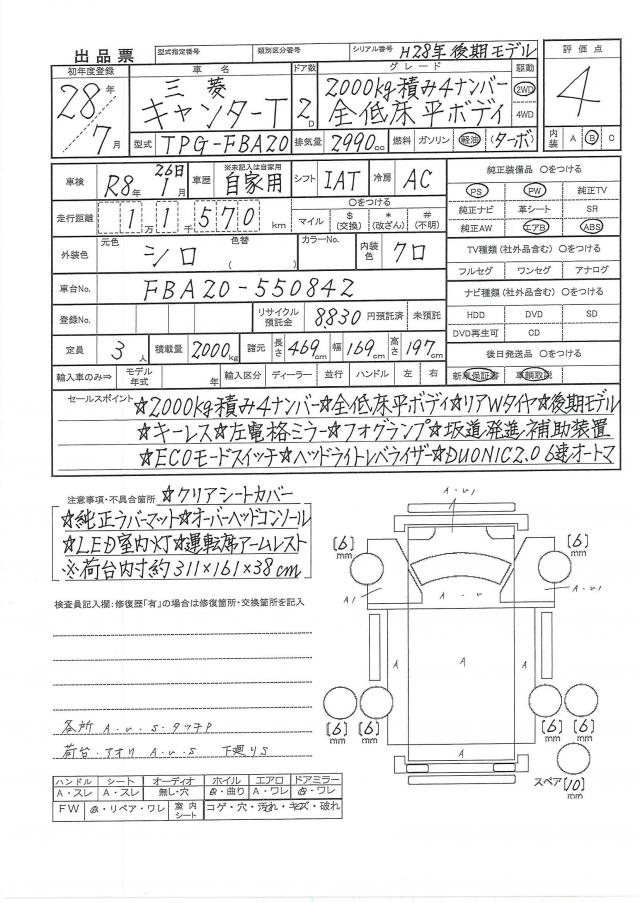 出品票 型式指定番号 類別区分番号 シリアル番号 H28年後期モデル
初年度登録 車名 ドア数 グレード 駆動 評価点
28年 三菱 2000kg積み4ナンバー 2WD 4
7月 キャンターT 2D 全低床平ボディ 4WD
型式 TPG-FBA20 排気量 2990cc 燃料 ガソリン 軽油 (ターボ) 内装 A B C
車検 R8年 26日 1月 車歴 ※未記入は自家用 自家用 シフト IAT 冷房 AC 純正装備品 ○をつける
PS PW 純正TV
走行距離 11万1千570km ○をつける
マイル $(交換) *(改ざん) #(不明)
純正ナビ 革シート SR
純正AW エアB ABS
外装色 元色 シロ 色替 ( ) カラーNo. 内装色 クロ
TV種類(社外品含む) ○をつける
フルセグ ワンセグ アナログ
車台No. FBA20-550842 ナビ種類(社外品含む)○をつける
登録No. リサイクル預託金 8,830 円預託済 未預託
HDD DVD SD
DVD再生可 CD
定員 3人 積載量 2000kg 諸元 長さ 469cm 幅 169cm 高さ 197cm
後日発送品 ○をつける
輸入車のみ⇒ モデル年式 年 輸入区分 ディーラー 並行 ハンドル 左 右 新車保証書 車輌取説
セールスポイント ☆2000kg積み4ナンバー☆全低床平ボディ☆リアWタイヤ☆後期モデル
☆キーレス☆左電格ミラー☆フォグランプ☆坂道発進補助装置
☆ECOモードスイッチ☆ヘッドライトレベライザー☆DUONIC2.0 6速オートマ
注意事項・不具合箇所 ☆クリアシートカバー
☆純正ラバーマット☆オーバーヘッドコンソール
☆LED室内灯☆運転席アームレスト
※荷台内寸約311×161×38cm
検査員記入欄:修復歴「有」の場合は修復箇所・交換箇所を記入
各所 A・U・S・タッチP
荷台・アオリ A・U・S 下廻りS
ハンドル シート オーディオ ホイル エアロ ドアミラー
A・スレ A・スレ 無し・穴 A・曲り A・ワレ A・ワレ
FW A・リペア・ワレ 室内シート コゲ・穴・汚れ・キズ・破れ
A・U1
[6]mm [6]mm
A1 A・U A・U
A A A
[6]mm [6]mm [6]mm [6]mm
A
スペア [10]mm